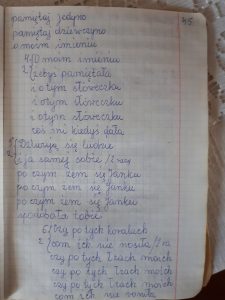 45
pamiętaj jedyno
pamiętaj dziewczyno
o moim imieniu
4/ O moim imieniu
2/ żebyś pamiętała
i o tym słóweczku
i o tym słóweczku
i o tym słóweczku
coś mi kiedyś dała
się ludkie
i ja samej sobie /2 razy
po czym żem się Janku
po czym żem się Janku
po czym żem się Janku
spodobała tobie
5/ Czy po tych koralach
2/ com ich nie nosiła /2 ra
czy po tych łzach moich
czy po tych łzach moich
czy po tych łzach moich
com ich nie